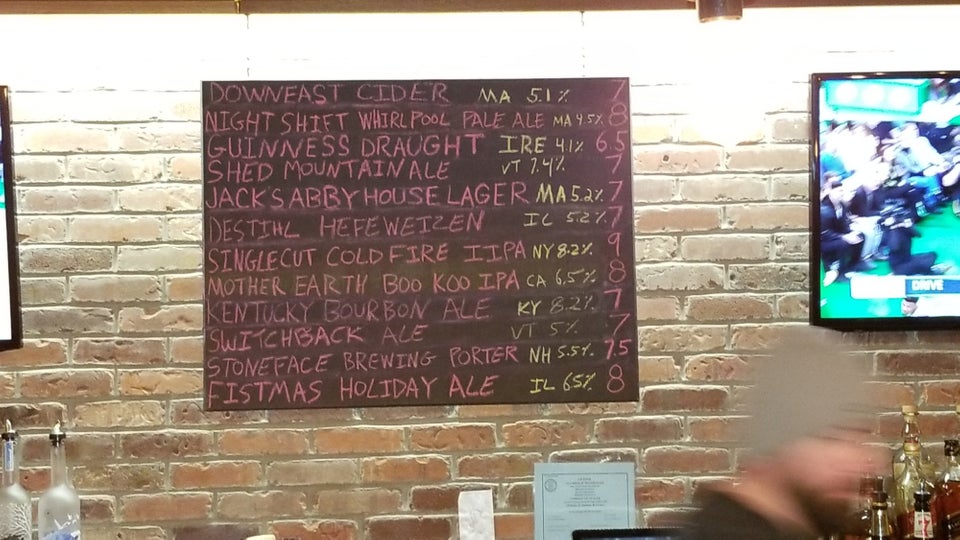 DOWNEAST CIDER MA 5.1% 7
NIGHT SHIFT WHIRLPOOL PALE ALE MA 4.5% 8
GUINNESS DRAUGHT IRE 4.1% 6.5
SHED MOUNTAIN ALE VT 7.4% 7
JACK'S ABBY HOUSE LAGER MA 5.2% 7
DESTIHL HEFEWEIZEN IL 5.2% 7
SINGLECUT COLD FIRE IIPA NY 8.2% 9
MOTHER EARTH BOO KOO IPA CA 6.5% 8
KENTUCKY BOURBON ALE KY 8.2% 7
SWITCHBACK ALE VT 5% 7
STONEFACE BREWING PORTER NH 5.5% 7.5
FISTMAS HOLIDAY ALE IL 65% 8
DRIVE